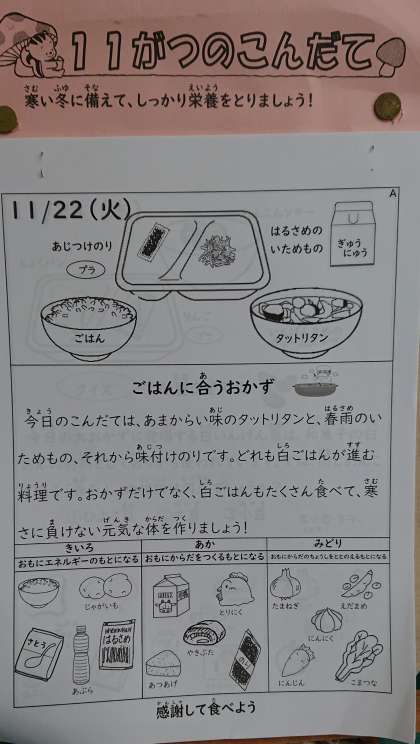 11がつのこんだて
寒い冬に備えて、しっかり栄養をとりましょう!
11/22(火)
A
あじつけのり
プラ
はるさめの
いためもの
ぎゅう
にゅう
ごはん
タットリタン
ごはんに合うおかず
今日のこんだては、あまからい味のタットリタンと、春雨のい
ためもの、それから味付けのりです。どれも白ごはんが進む
料理です。おかずだけでなく、白ごはんもたくさん食べて、寒
さに負けない元気な体を作りましょう!
きいろ
おもにエネルギーのもとになる
あか
おもにからだをつくるもとになる
みどり
おもにからだのちょうしをととのえるもとになる
じゃがいも
さとう
あぶら
はるさめ
とりにく
やきぶた
あつあげ
のり
たまねぎ
えだまめ
にんにく
にんじん
こまつな
感謝して食べよう